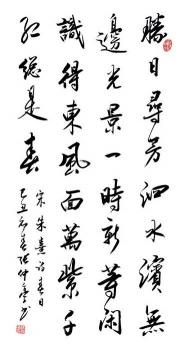 勝日尋芳泗水濱無
邊光景一時新等閑
識得東風面萬紫千
紅總是春
宋朱熹詩春日